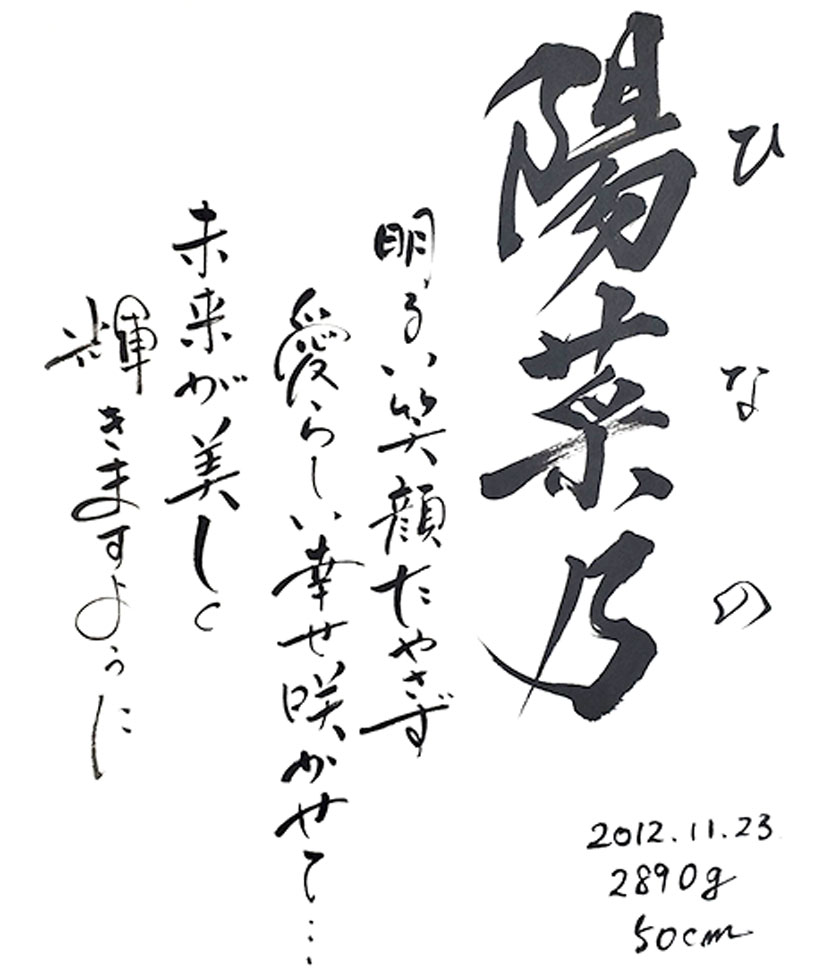 ひなの
陽菜乃
明るい笑顔たやさず
愛らしい幸せ咲かせて…
未来が美しく
輝きますように
2012.11.23
2890g
50cm